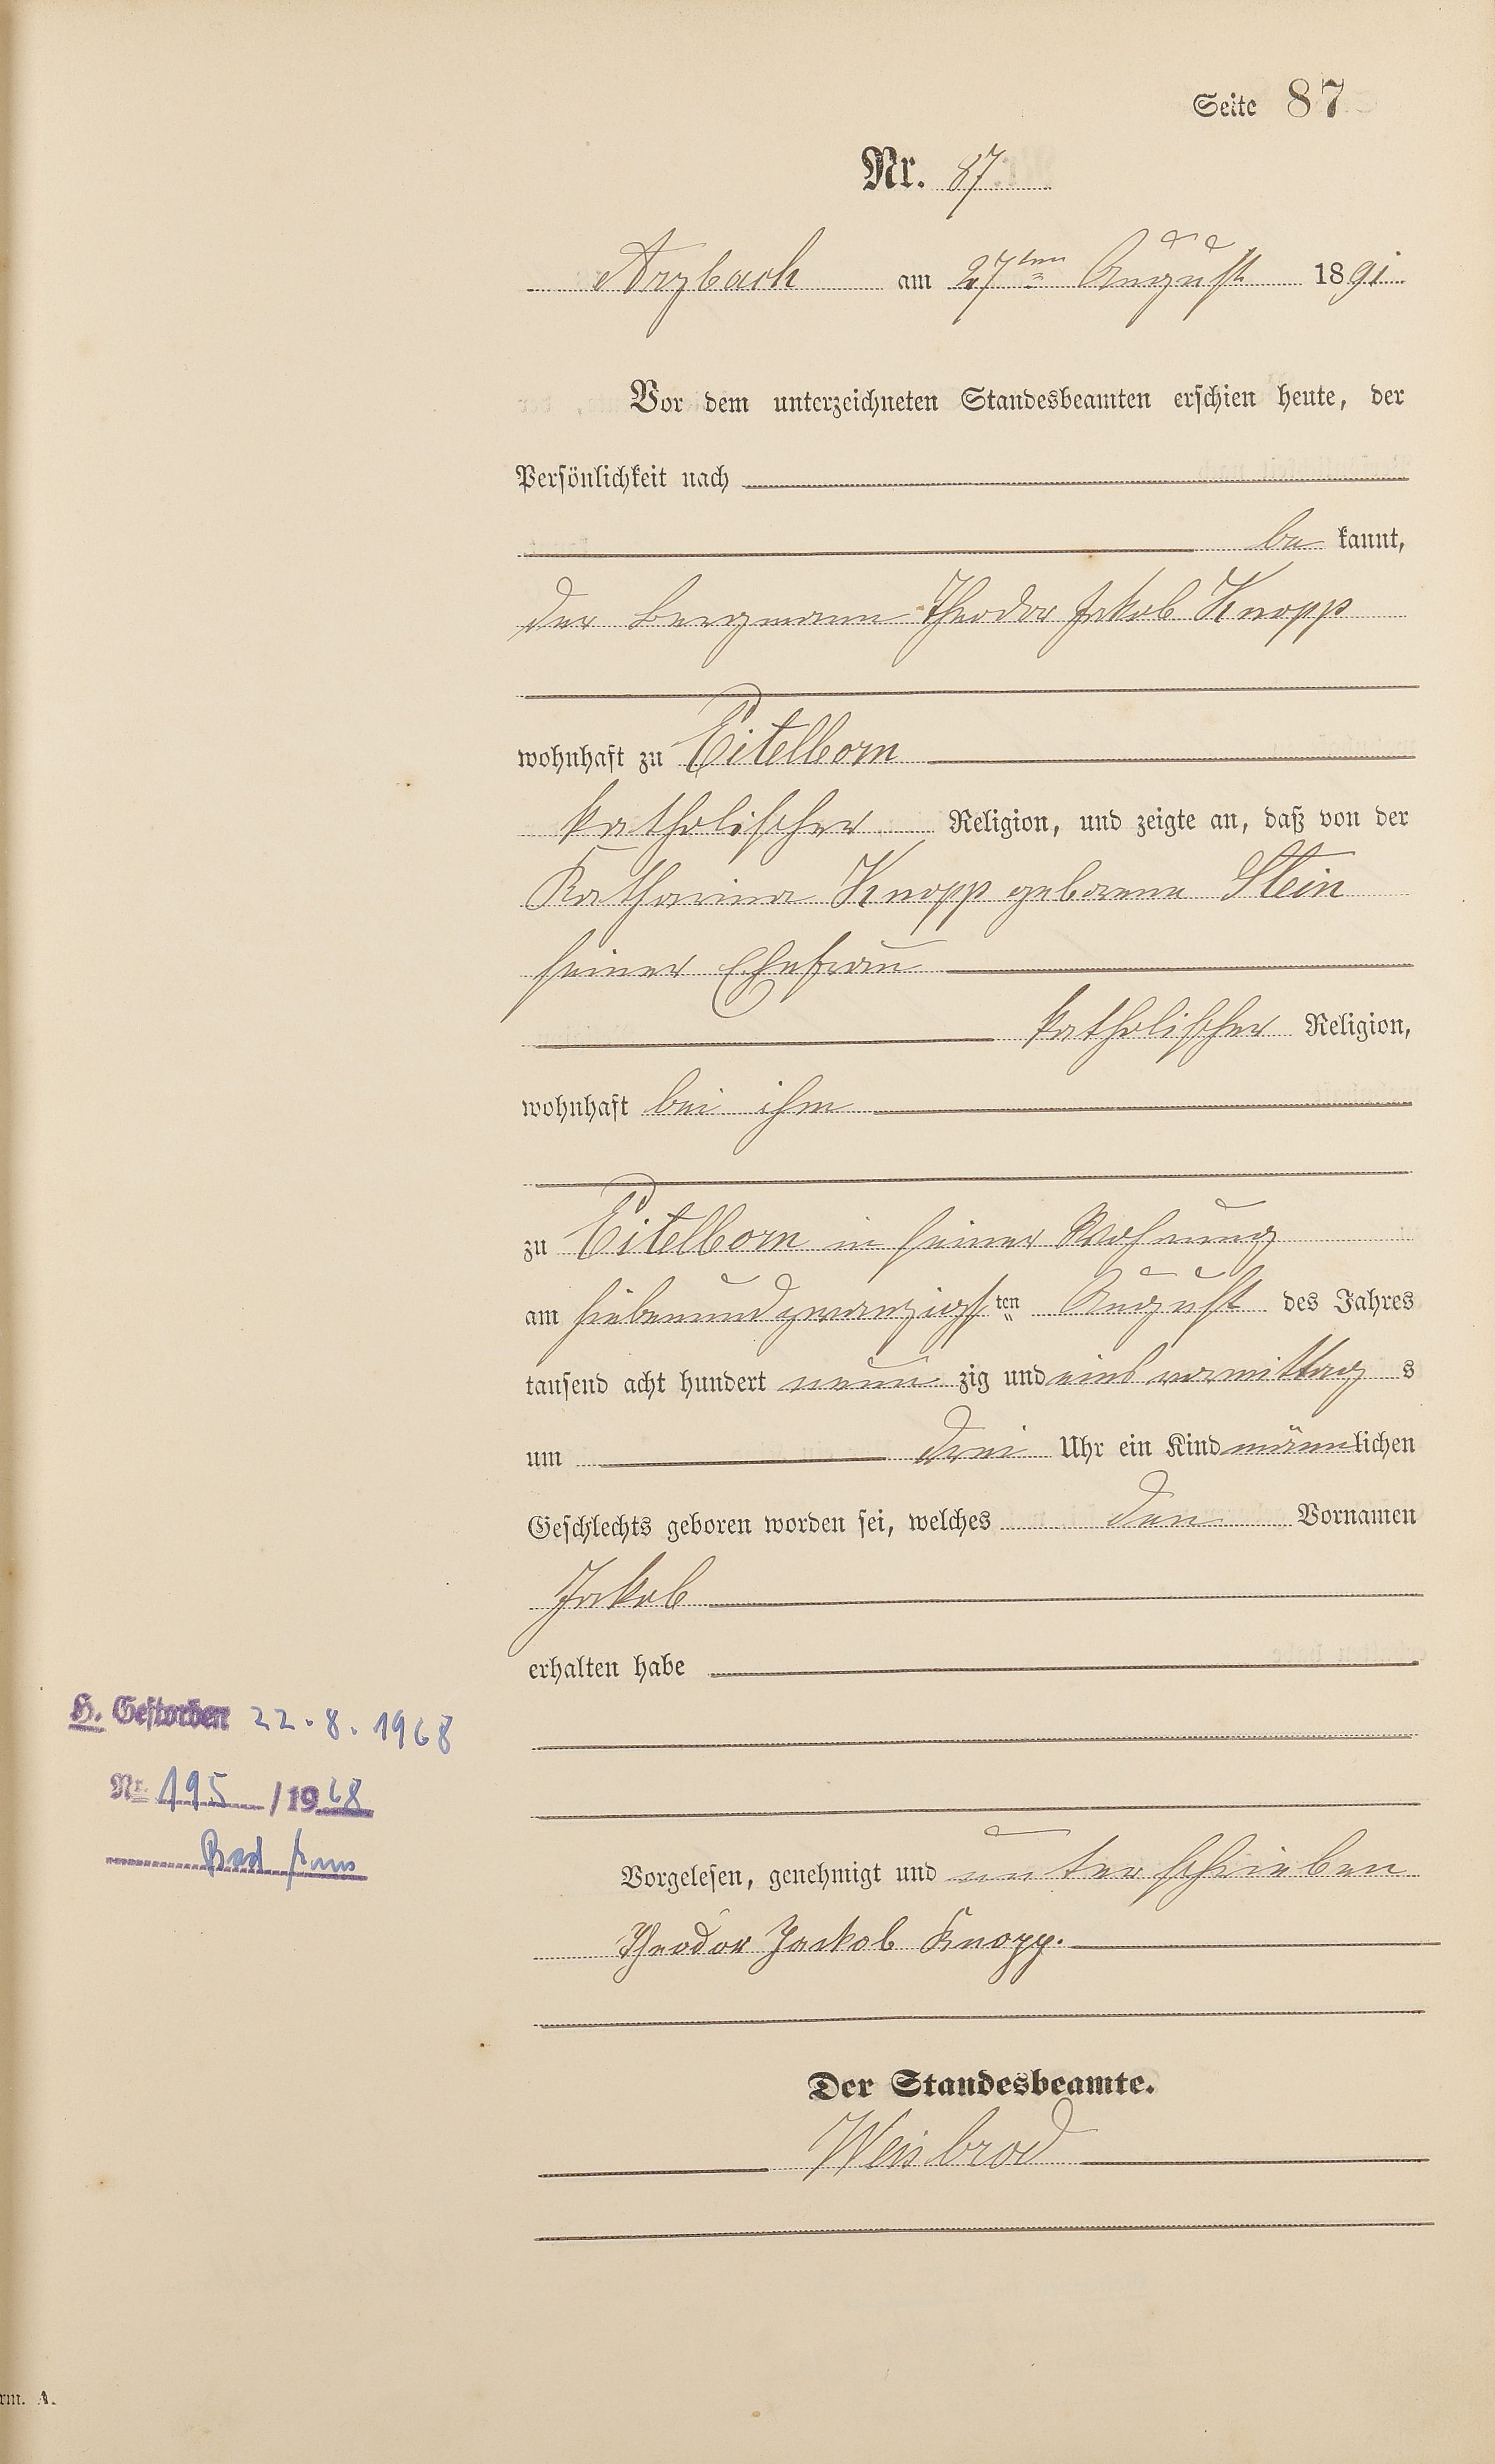 Seite 87
Nr. 87
Arzbach am 27ten August 1891
Vor dem unterzeichneten Standesbeamten erschien heute, der
Persönlichkeit nach
be kannt,
der Bergmann Theodor Jakob Knopp
wohnhaft zu Eitelborn
katholischer Religion, und zeigte an, daß von der
Katharina Knopp geborene Stein
seiner Ehefrau
katholischer Religion,
wohnhaft bei ihm
zu Eitelborn in seiner Wohnung
am siebenundzwanzigsten August des Jahres
tausend acht hundert neun zig und eins vormittag s
um drei Uhr ein Kind männlichen
Geschlechts geboren worden sei, welches den Vornamen
Jakob
erhalten habe
H. Gestorben 22.8.1968
Nr. 195 /1968
Bad Ems
Vorgelesen, genehmigt und unterschrieben
Theodor Jackob Knopp.
Der Standesbeamte.
Weisbrod
rm. A.